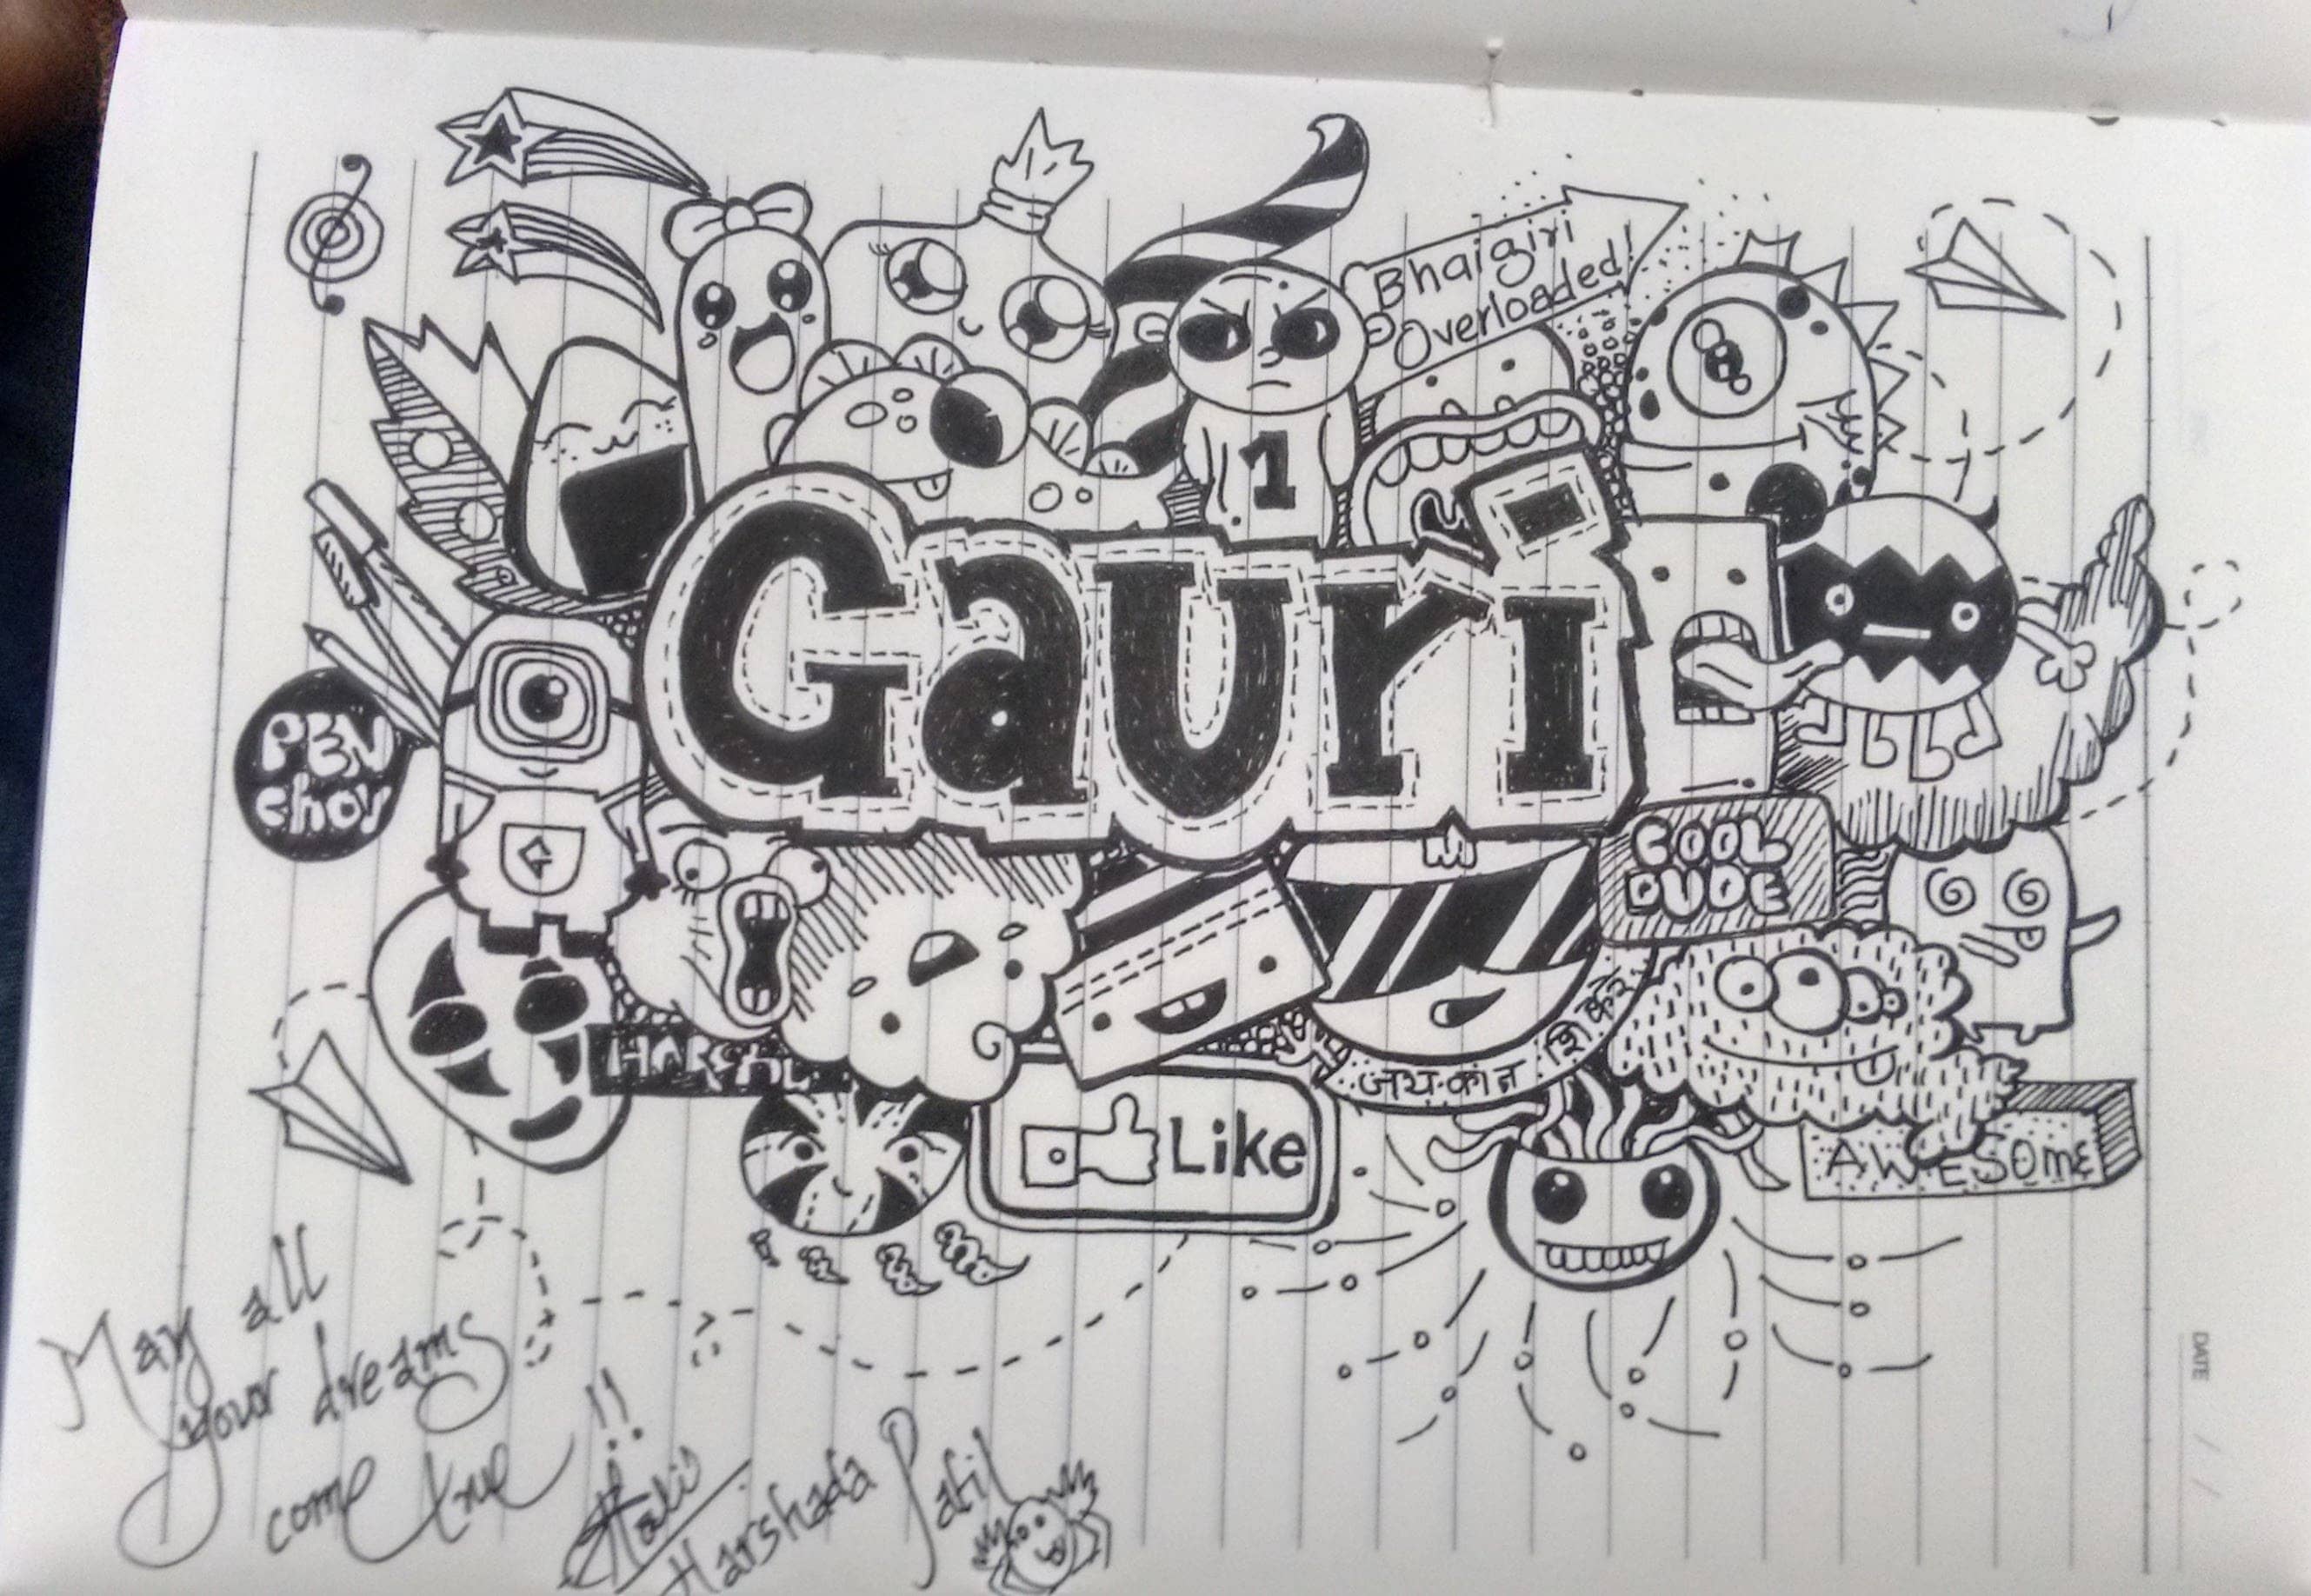 Bhaigiri
Overloaded!
1
Gauri
PEN
chor
G
COOL
DUDE
HARSHAL
जयकांत शिक्रे
Like
AWESOME
May all
your dreams
come true !!
Harshada Patil
DATE / /